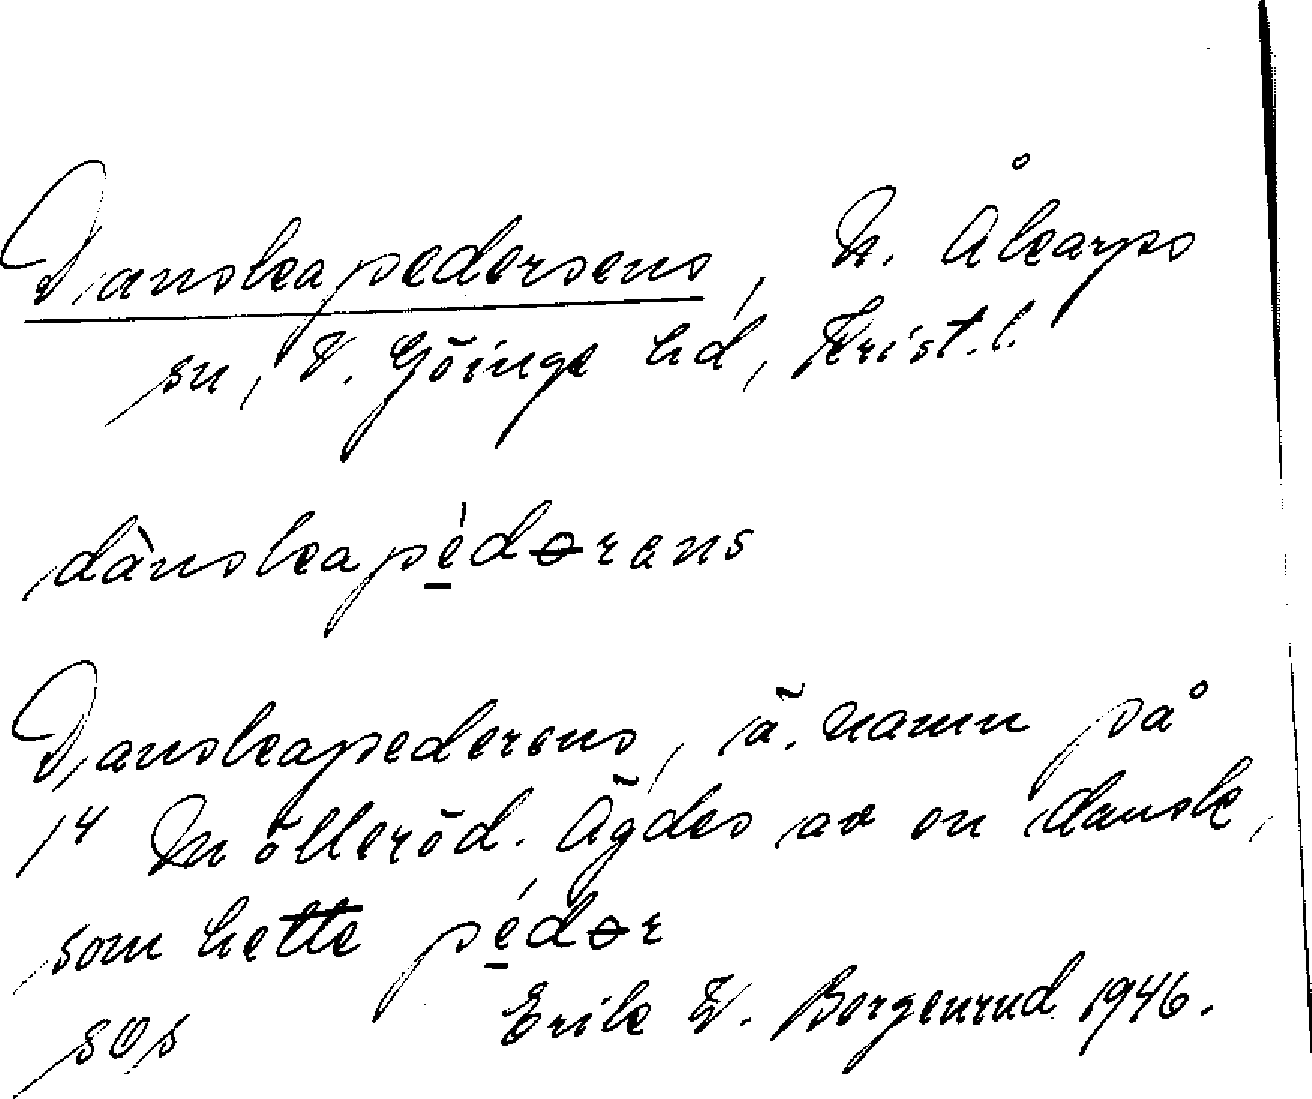 Danskapedersens, N. Åkarps
sn, V. Göinge hd, Krist. l.
dànskapédɵrans
Danskapederens, ä. namn på
1⁴ Mölleröd. Ägdes av en dansk,
som hette pédɵr
sos Erik W. Borgenrud 1946.